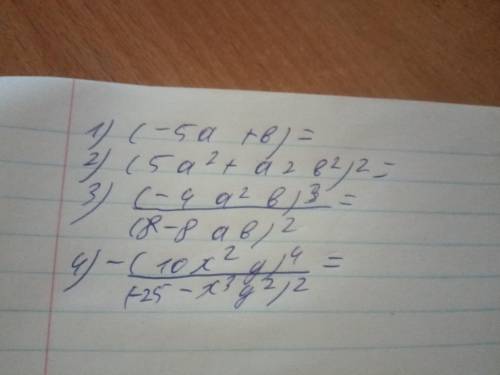 1) (-5a +в)=
2) (5a² + a 2 в²)²=
3) (-4 a² в)³ =
(8-8 aв)²
4) -(10x² y)⁴ =
(-25 - x³ y²)²